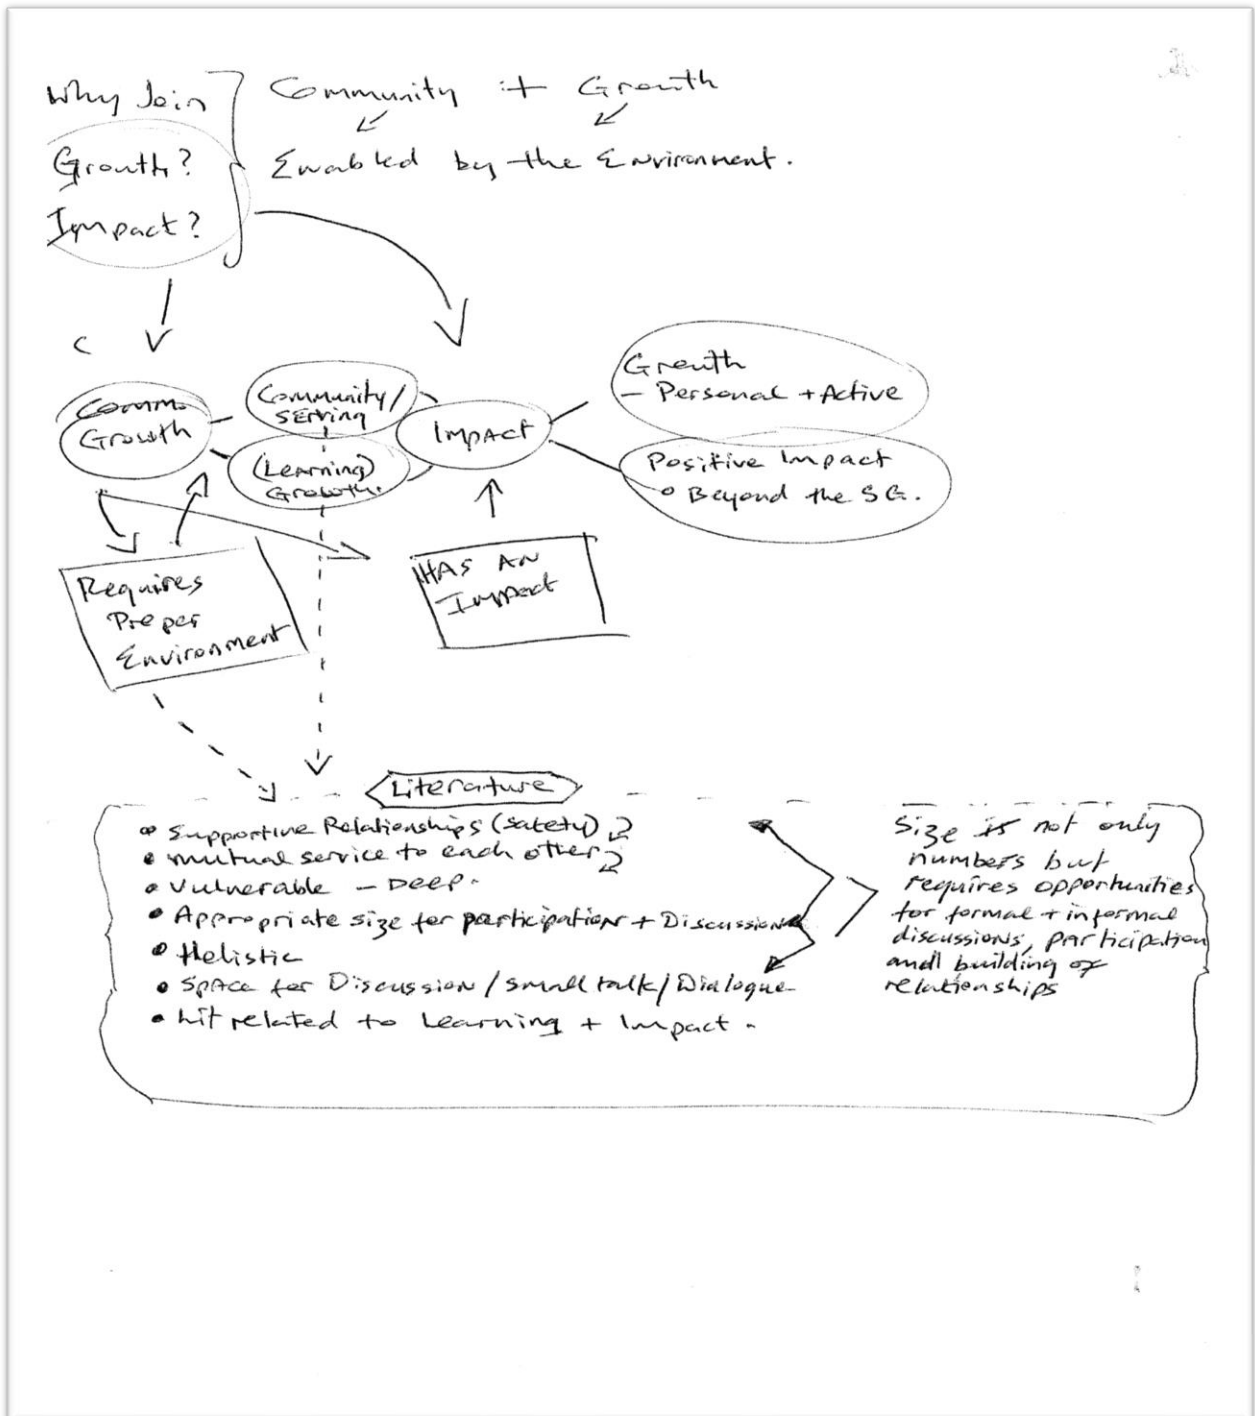 Why Join
Growth?
Impact?
Community + Growth
Enabled by the Environment.
C
Comm.
Growth
Community/
Serving
(Learning)
Growth.
Impact
Growth
- Personal + Active
Positive Impact
Beyond the SG.
Requires
Proper
Environment
HAS AN
Impact
Literature
• Supportive Relationships (Safety)
• mutual service to each other
• Vulnerable - Deep.
• Appropriate size for participation + Discussion
• Holistic
• Space for Discussion / small talk / Dialogue
• Lit related to Learning + Impact.
Size is not only
numbers but
requires opportunities
for formal + informal
discussions, participation
and building of
relationships